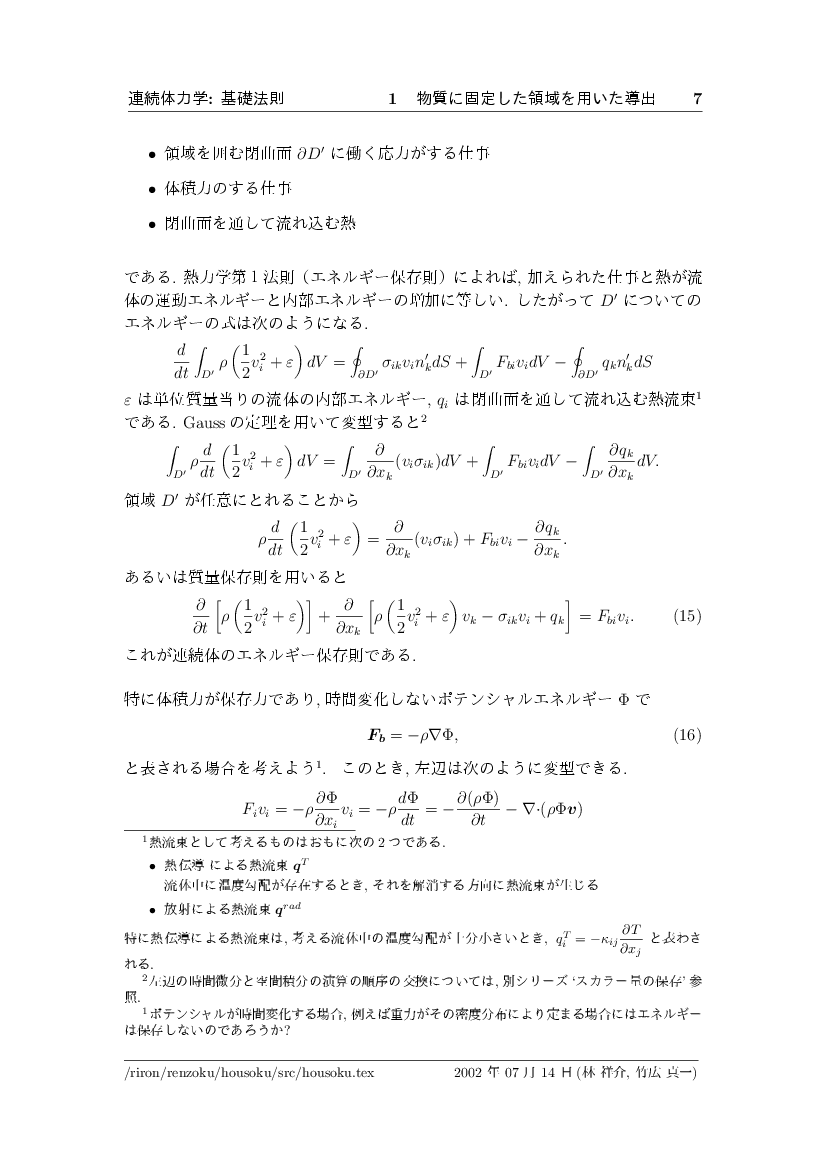 連続体力学: 基礎法則 1 物質に固定した領域を用いた導出 7
• 領域を囲む閉曲面 ∂D′ に働く応力がする仕事
• 体積力のする仕事
• 閉曲面を通して流れ込む熱
である. 熱力学第 1 法則（エネルギー保存則）によれば, 加えられた仕事と熱が流
体の運動エネルギーと内部エネルギーの増加に等しい. したがって D′ についての
エネルギーの式は次のようになる.
d/dt ∫_{D′} ρ (1/2 v_i^2 + ε) dV = ∮_{∂D′} σ_{ik}v_i n′_k dS + ∫_{D′} F_{bi}v_i dV − ∮_{∂D′} q_k n′_k dS
ε は単位質量当りの流体の内部エネルギー, q_i は閉曲面を通して流れ込む熱流束¹
である. Gauss の定理を用いて変型すると²
∫_{D′} ρ d/dt (1/2 v_i^2 + ε) dV = ∫_{D′} ∂/∂x_k (v_i σ_{ik})dV + ∫_{D′} F_{bi}v_i dV − ∫_{D′} ∂q_k/∂x_k dV.
領域 D′ が任意にとれることから
ρ d/dt (1/2 v_i^2 + ε) = ∂/∂x_k (v_i σ_{ik}) + F_{bi}v_i − ∂q_k/∂x_k.
あるいは質量保存則を用いると
∂/∂t [ρ (1/2 v_i^2 + ε)] + ∂/∂x_k [ρ (1/2 v_i^2 + ε) v_k − σ_{ik}v_i + q_k] = F_{bi}v_i. (15)
これが連続体のエネルギー保存則である.
特に体積力が保存力であり, 時間変化しないポテンシャルエネルギー Φ で
F_b = −ρ∇Φ, (16)
と表される場合を考えよう¹. このとき, 左辺は次のように変型できる.
F_i v_i = −ρ ∂Φ/∂x_i v_i = −ρ dΦ/dt = − ∂(ρΦ)/∂t − ∇·(ρΦv)
¹熱流束として考えるものはおもに次の 2 つである.
• 熱伝導 による熱流束 q^T
流体中に温度勾配が存在するとき, それを解消する方向に熱流束が生じる
• 放射による熱流束 q^{rad}
特に熱伝導による熱流束は, 考える流体中の温度勾配が十分小さいとき, q_i^T = −κ_{ij} ∂T/∂x_j と表わさ
れる.
²左辺の時間微分と空間積分の演算の順序の交換については, 別シリーズ ‘スカラー量の保存’ 参
照.
¹ポテンシャルが時間変化する場合, 例えば重力がその密度分布により定まる場合にはエネルギー
は保存しないのであろうか?
/riron/renzoku/housoku/src/housoku.tex 2002 年 07 月 14 日 (林 祥介, 竹広 真一)